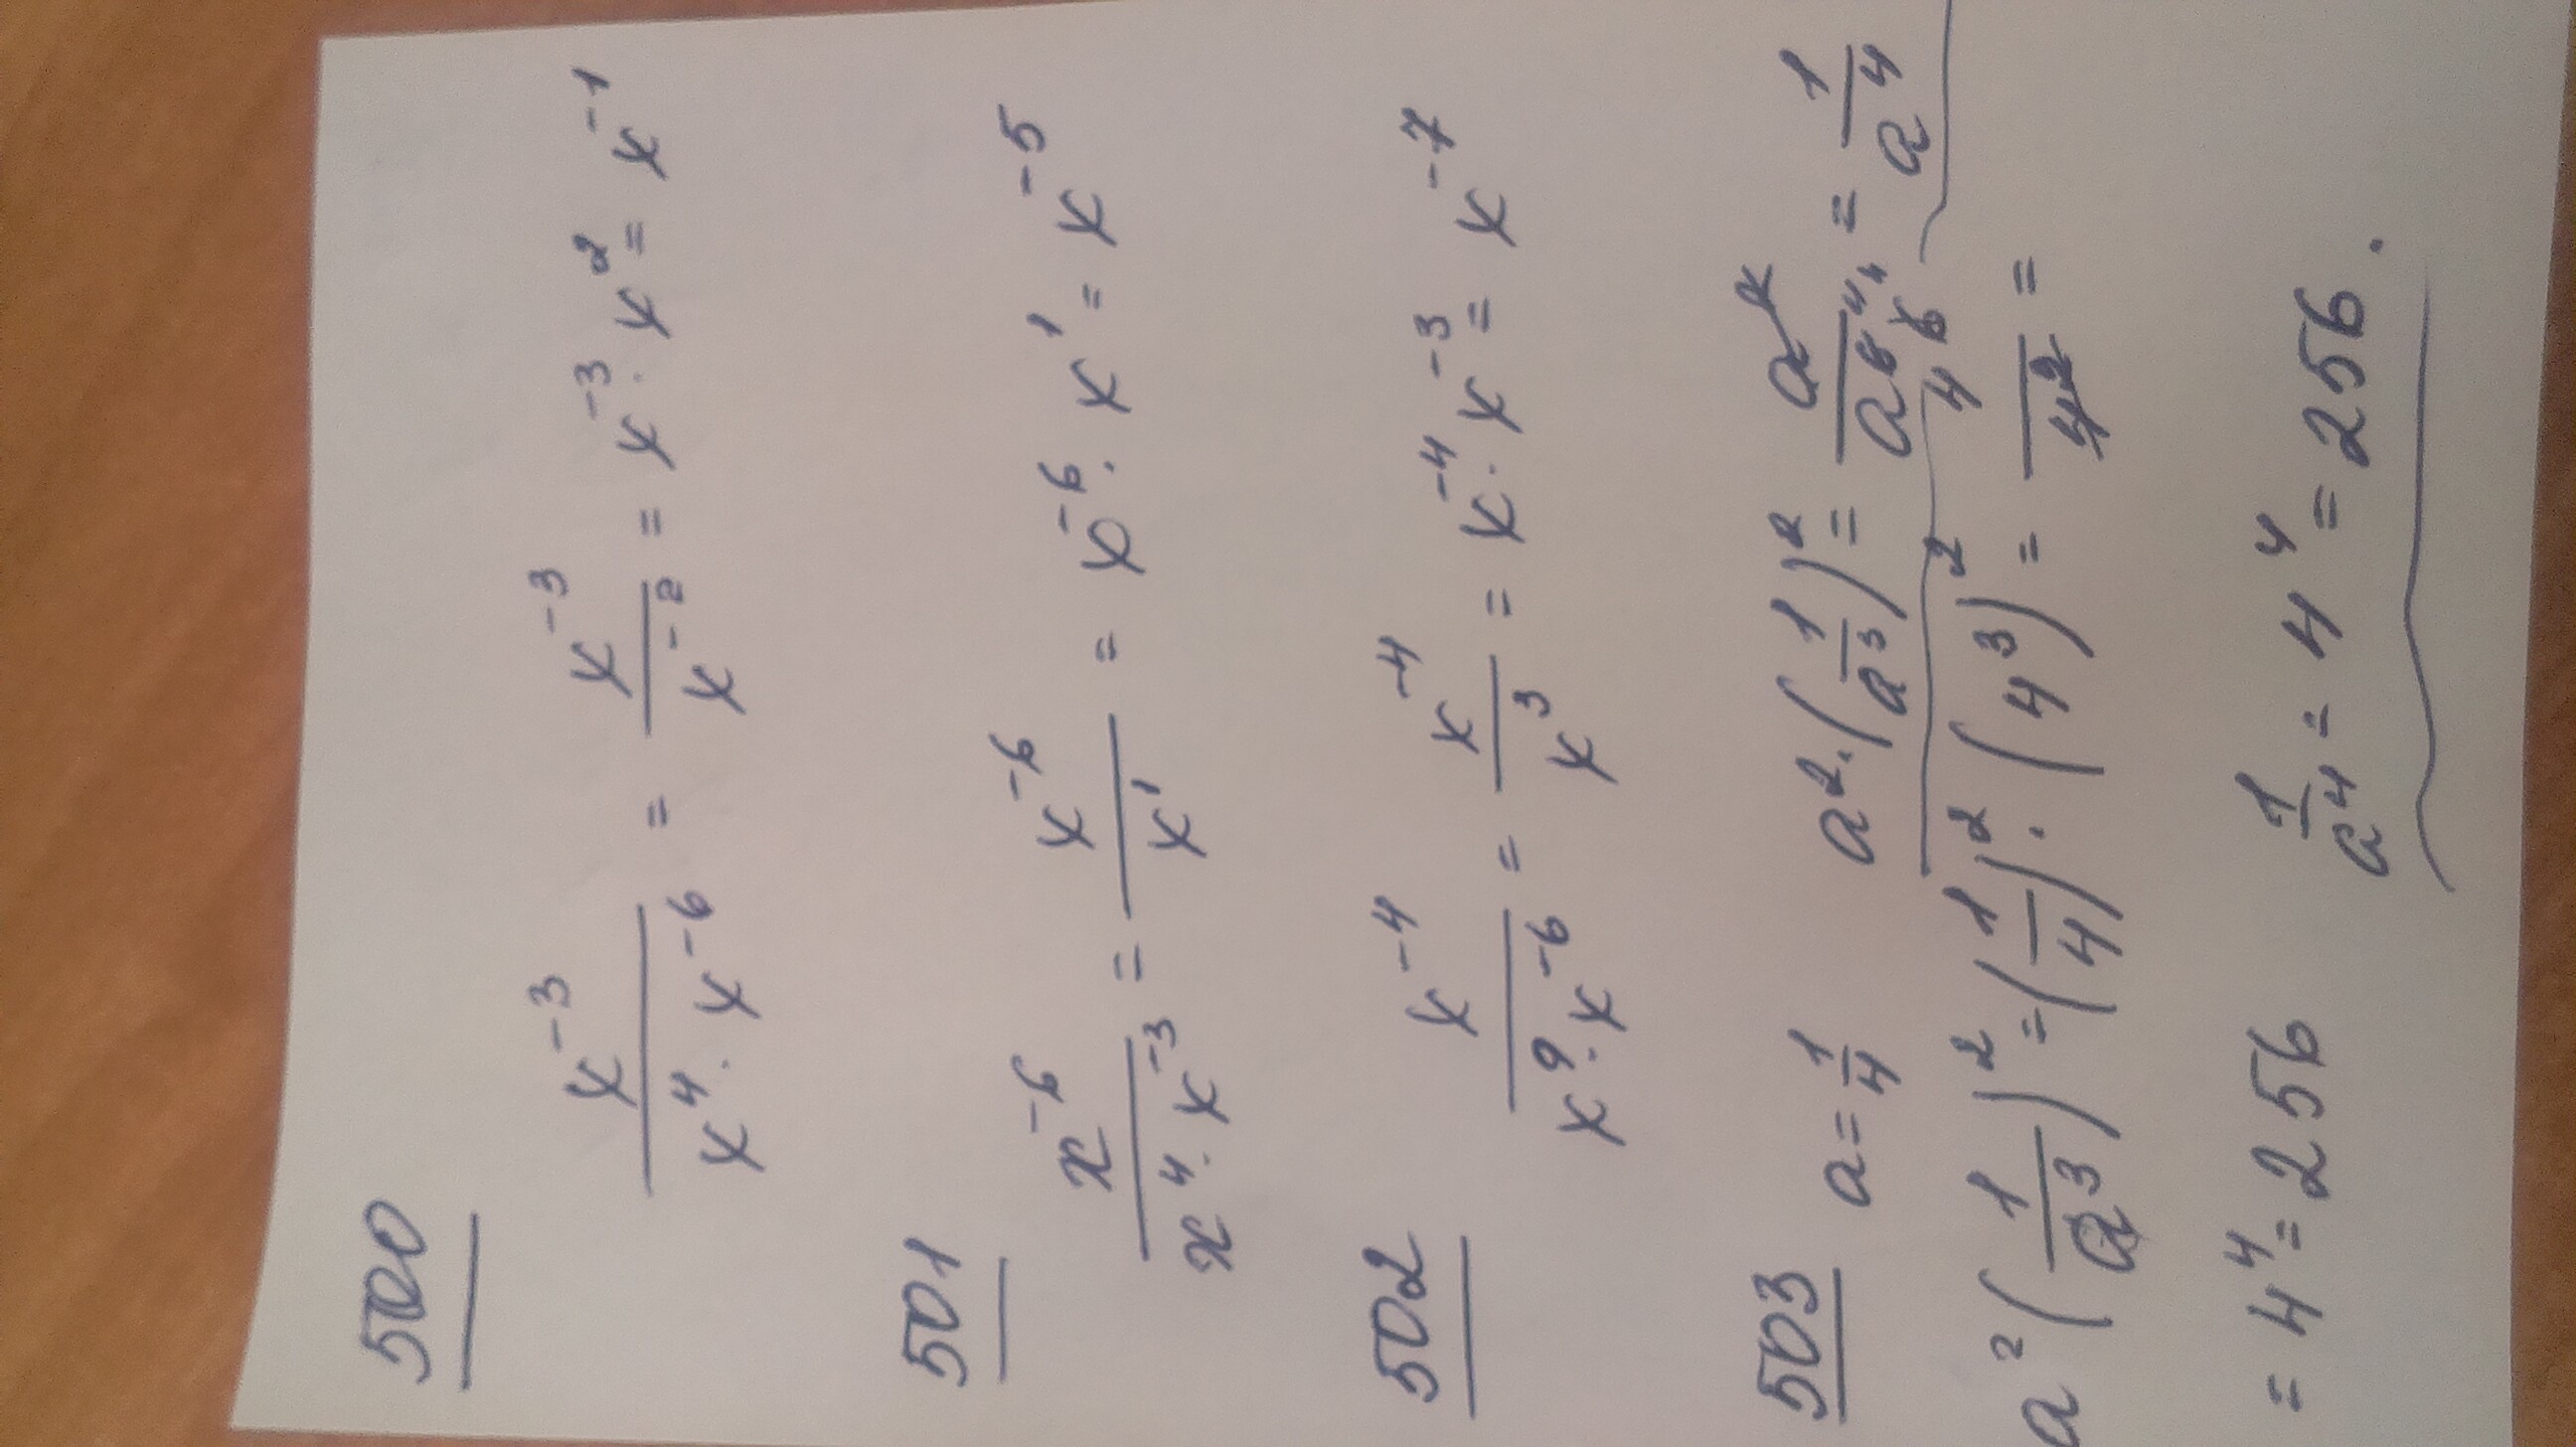 500
x⁻³/(x⁴ · x⁻⁶) = x⁻³/x⁻² = x⁻³ · x² = x⁻¹
501
x⁻⁶/(x⁴ · x⁻³) = x⁻⁶/x¹ = x⁻⁶ · x¹ = x⁻⁵
502
x⁻⁴/(x⁹ · x⁻⁶) = x⁻⁴/x³ = x⁻⁴ · x⁻³ = x⁻⁷
503 a = 1/4 a² · (1/a³)² = a²/a⁶ = 1/a⁴
a² (1/a³)² = (1/4)² · (4³)² = 4⁶/4² =
= 4⁴ = 256 1/a⁴ = 4⁴ = 256.